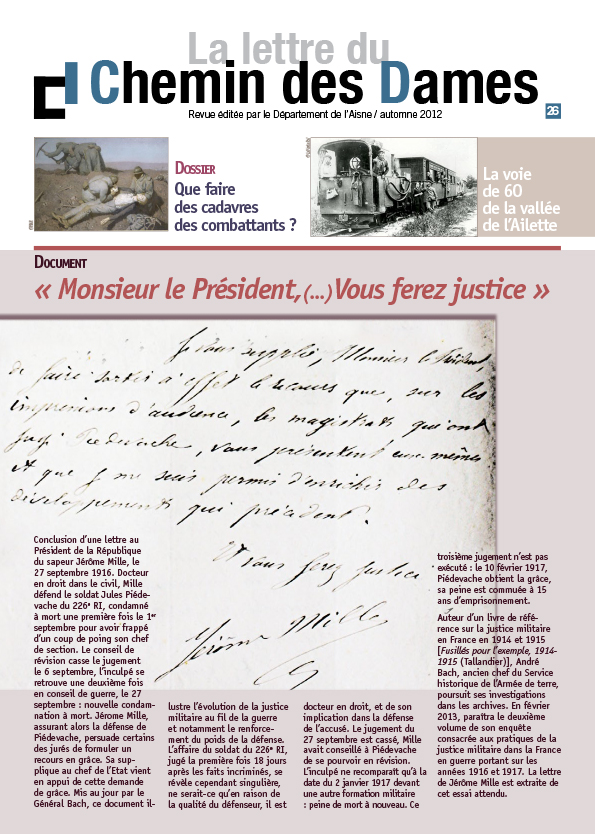 La lettre du
Chemin des Dames
Revue éditée par le Département de l'Aisne / automne 2012
26
DOSSIER
Que faire
des cadavres
des combattants ?
La voie
de 60
de la vallée
de l'Ailette
DOCUMENT
« Monsieur le Président,(...)Vous ferez justice »
Je vous supplie, Monsieur le Président,
de faire sortir à effet le recours que, sur les
impressions d'audience, les magistrats qui ont
jugé Piedevache, vous présentent eux-mêmes
et que je me suis permis d'enrichir des
développements qui précèdent.
Et vous ferez justice
Jérôme Mille
Conclusion d'une lettre au
Président de la République
du sapeur Jérôme Mille, le
27 septembre 1916. Docteur
en droit dans le civil, Mille
défend le soldat Jules Piéde-
vache du 226e RI, condamné
à mort une première fois le 1er
septembre pour avoir frappé
d'un coup de poing son chef
de section. Le conseil de
révision casse le jugement
le 6 septembre, l'inculpé se
retrouve une deuxième fois
en conseil de guerre, le 27
septembre : nouvelle condam-
nation à mort. Jérome Mille,
assurant alors la défense de
Piédevache, persuade certains
des jurés de formuler un
recours en grâce. Sa sup-
plique au chef de l'Etat vient
en appui de cette demande
de grâce. Mis au jour par le
Général Bach, ce document il-
lustre l'évolution de la justice
militaire au fil de la guerre
et notamment le renforce-
ment du poids de la défense.
L'affaire du soldat du 226e RI,
jugé la première fois 18 jours
après les faits incriminés, se
révèle cependant singulière,
ne serait-ce qu'en raison de
la qualité du défenseur, il est
docteur en droit, et de son
implication dans la défense
de l'accusé. Le jugement du
27 septembre est cassé, Mille
avait conseillé à Piédevache
de se pourvoir en révision.
L'inculpé ne recomparaît qu'à la
date du 2 janvier 1917 devant
une autre formation militaire
: peine de mort à nouveau. Ce
troisième jugement n'est pas
exécuté : le 10 février 1917,
Piédevache obtient la grâce,
sa peine est commuée à 15
ans d'emprisonnement.
Auteur d'un livre de réfé-
rence sur la justice militaire
en France en 1914 et 1915
[Fusillés pour l'exemple, 1914-
1915 (Tallandier)], André
Bach, ancien chef du Service
historique de l'Armée de terre,
poursuit ses investigations
dans les archives. En février
2013, paraîtra le deuxième
volume de son enquête
consacrée aux pratiques de la
justice militaire dans la France
en guerre portant sur les
années 1916 et 1917. La lettre
de Jérôme Mille est extraite de
cet essai attendu.